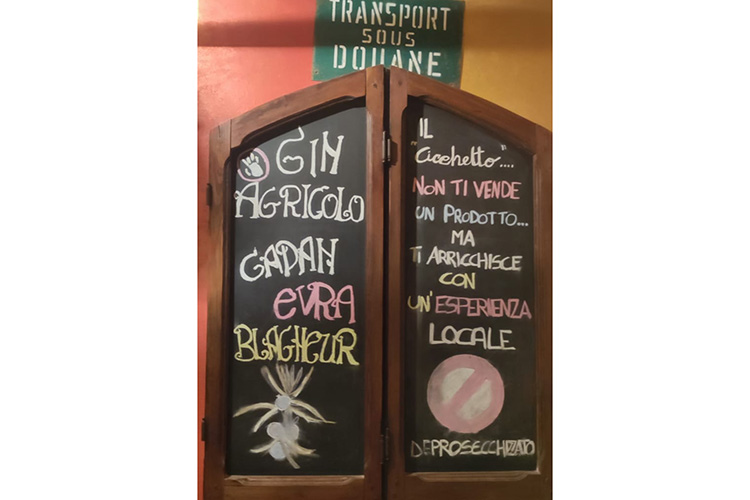 TRANSPORT
SOUS
DOUANE
GIN
AGRICOLO
GADAN
EVRA
BLAGHEUR
IL
"Cicchetto"....
NON TI VENDE
UN PRODOTTO...
MA
TI ARRICCHISCE
CON
UN'ESPERIENZA
LOCALE
DEPROSECCHIZZATO